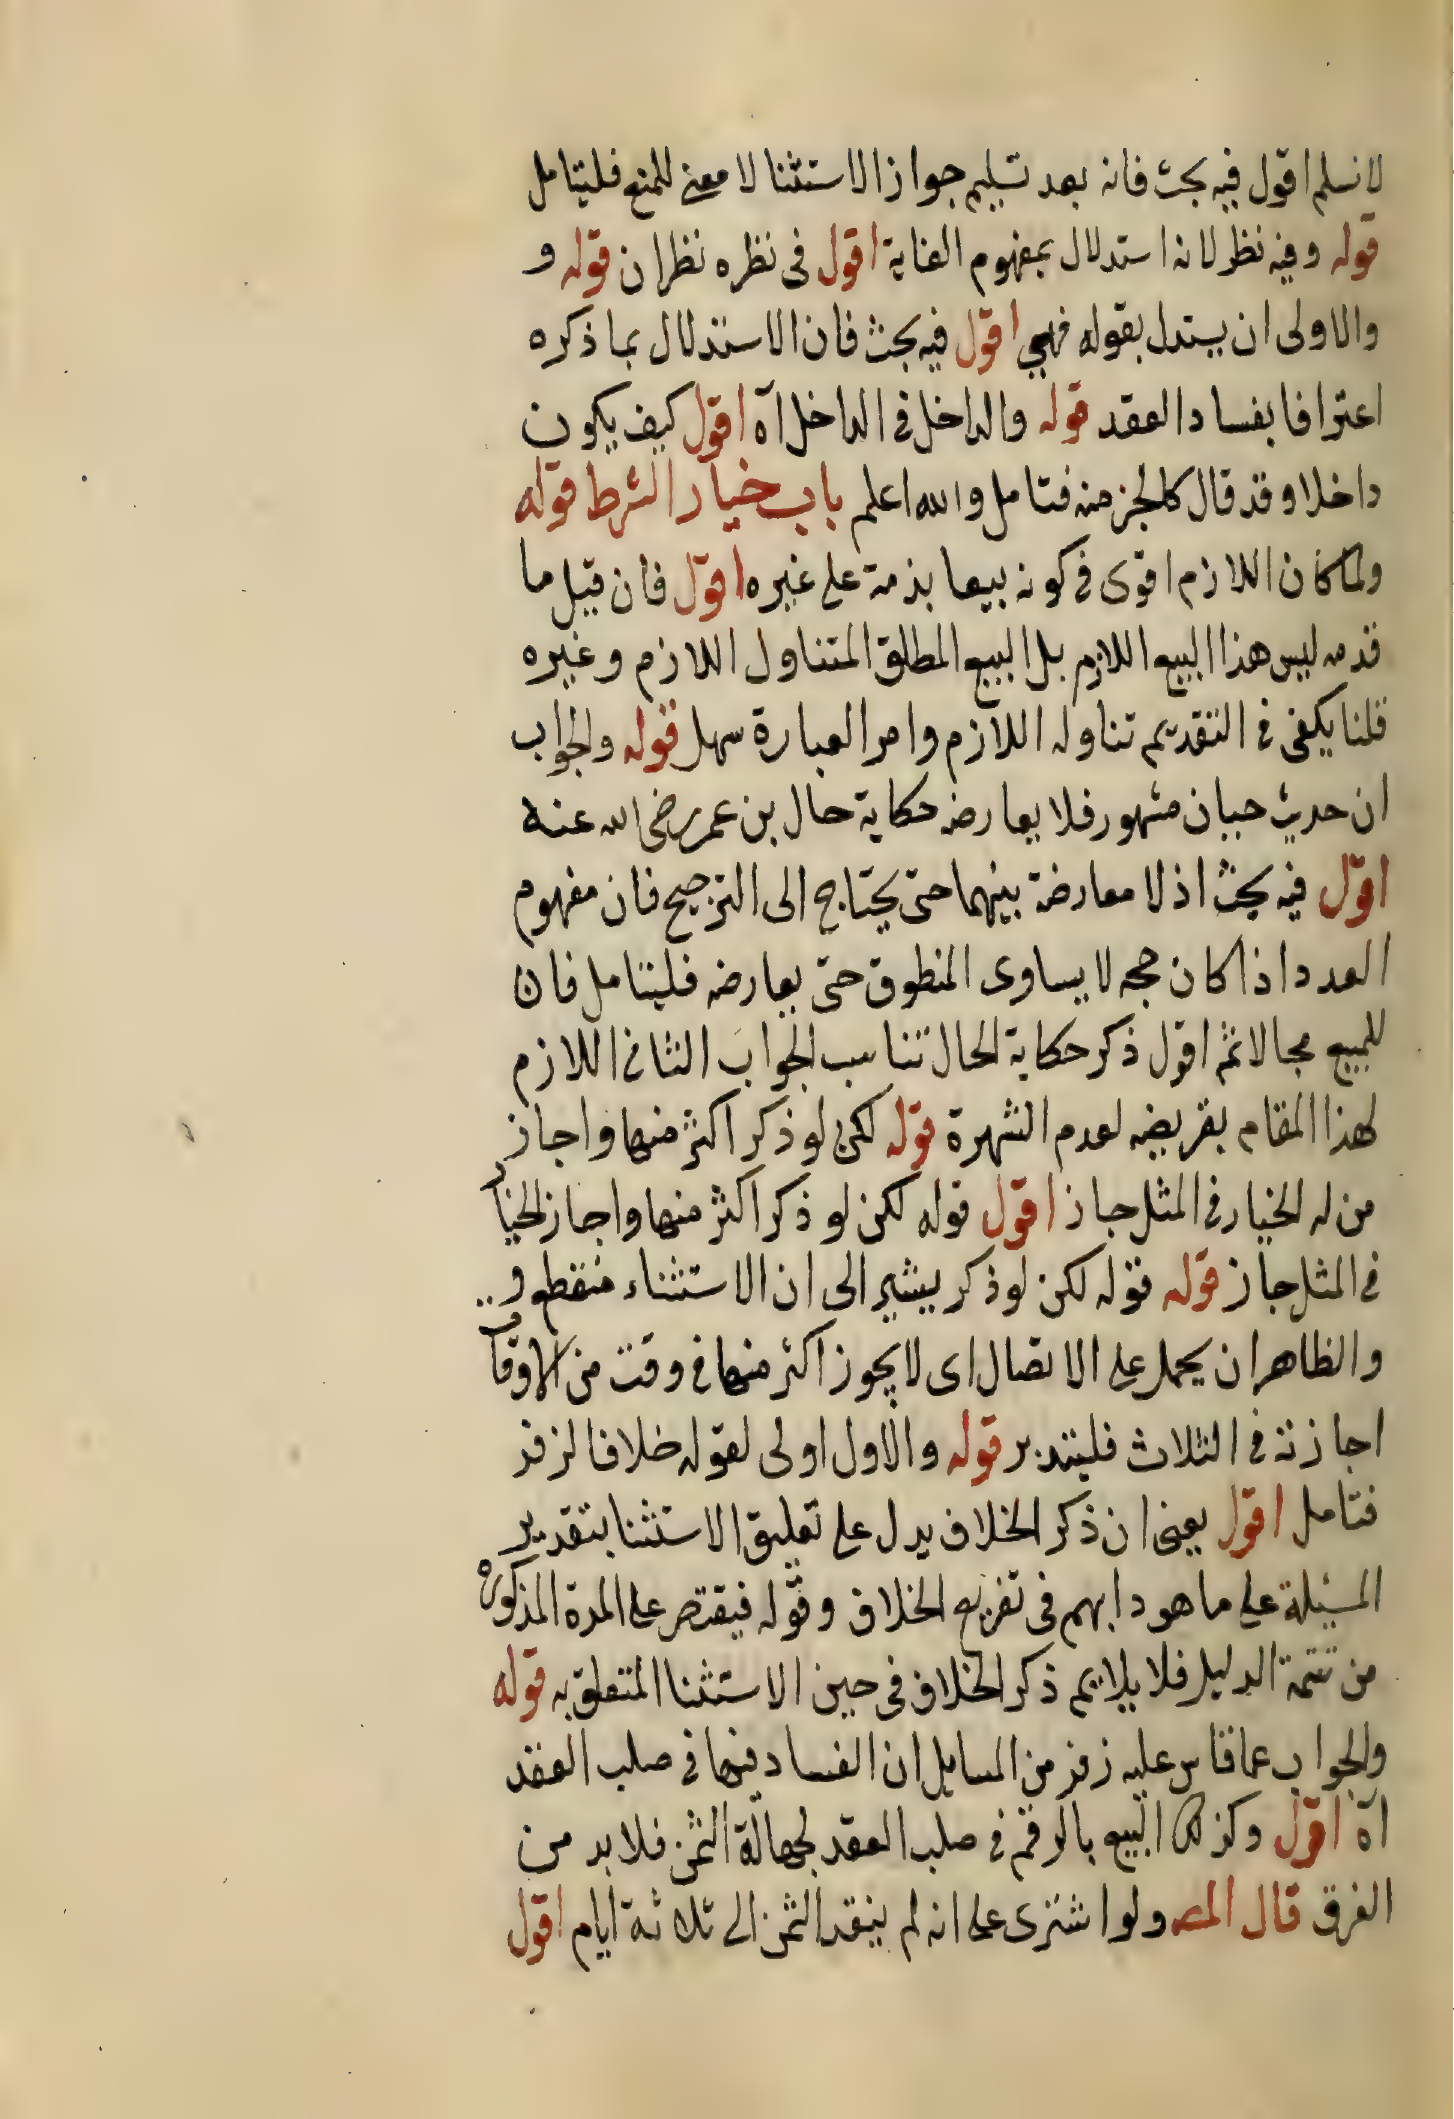 لا نسلم اقول فيه بحث فانه بعد تسليم جواز الاستثنا لا معنى للمنع فليتامل
قوله وفيه نظر لانه استدلال بمفهوم الغاية اقول فى نظره نظر ان قوله و
والاولى ان يستدل بقوله فهي اقول فيه بحث فان الاستدلال بما ذكره
اعترافا بفساد العقد قوله والداخل فى الداخل اه اقول كيف يكون
داخلا وقد قال كالجز منه فتامل والله اعلم باب خيار الشرط قوله
ولما كان اللازم اقوى فى كونه بيعا بذمة على غيره اقول فان قيل ما
قدمه ليس هذا البيع اللازم بل البيع المطلق المتناول اللازم وغيره
قلنا يكفى فى التقديم تناوله اللازم وامر العبارة سهل قوله والجواب
ان حديث حبان مشهور فلا يعارضه حكاية حال بن عمر رضى الله عنه
اقول فيه بحث اذ لا معارضة بينهما حتى يحتاج الى الترجيح فان مفهوم
العدد اذا كان حجه لا يساوى المنطوق حتى يعارضه فليتامل فان
للمبيع مجالا ثم اقول ذكر حكاية الحال تناسب الجواب الثانى اللازم
لهذا المقام بقريضه لعدم الشهرة قوله لكن لو ذكر اكثر منها واجاز
من له الخيار فى المثل جاز اقول قوله لكن لو ذكر اكثر منها واجاز الخيار
فى المثل جاز قوله قوله لكن لو ذكر يشير الى ان الاستثناء منقطع و
والظاهر ان يحمل على الاتصال اى لا يجوز اكثر منها فى وقت من الاوقات
اجازته فى الثلاث فليتدبر قوله والاول اولى لقوله خلافا لزفر
فتامل اقول يعنى ان ذكر الخلاف يدل على تعليق الاستثنا بتقدير
المسئلة على ما هو دابهم فى تفريع الخلاف وقوله فيقتصر على المدة المذكوره
من تتمة الدليل فلا يلايم ذكر الخلاف فى حين الاستثنا المتعلق به قوله
والجواب عما قاس عليه زفر من المسايل ان الفساد فيها فى صلب العقد
اه اقول وكذلك البيع بالرقم فى صلب العقد لجهالة الثمن فلا بد من
الفرق قال المصـ ولو اشترى على انه لم ينقد الثمن الى ثلاثة ايام اقول